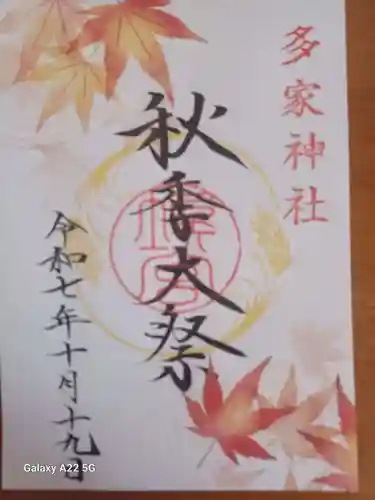 多家神社
秋季大祭
令和七年十月十九日
Galaxy A22 5G